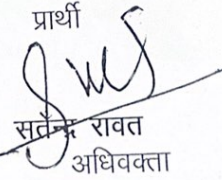 प्रार्थी
सतेन्द्र रावत
अधिवक्ता